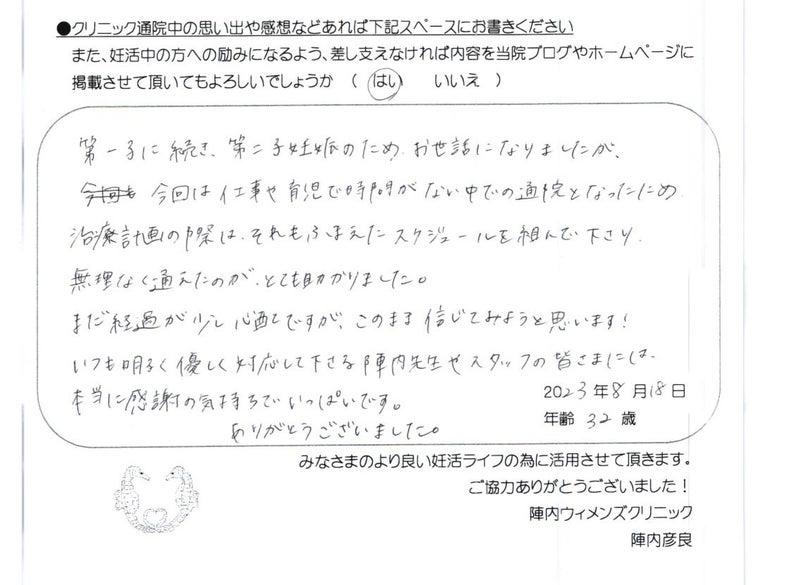 ●クリニック通院中の思い出や感想などあれば下記スペースにお書きください
また、妊活中の方への励みになるよう、差し支えなければ内容を当院ブログやホームページに
掲載させて頂いてもよろしいでしょうか （ はい いいえ ）
第一子に続き、第二子妊娠のため、お世話になりましたが、
今回も 今回は仕事や育児で時間がない中での通院となったため
治療計画の際は、それもふまえたスケジュールを組んで下さり、
無理なく通えたのが、とても助かりました。
まだ経過が少し心配ですが、このまま信じてみようと思います！
いつも明るく優しく対応して下さる陣内先生やスタッフの皆さまには、
本当に感謝の気持ちでいっぱいです。
ありがとうございました。
2023年8月18日
年齢 32 歳
みなさまのより良い妊活ライフの為に活用させて頂きます。
ご協力ありがとうございました！
陣内ウィメンズクリニック
陣内彦良